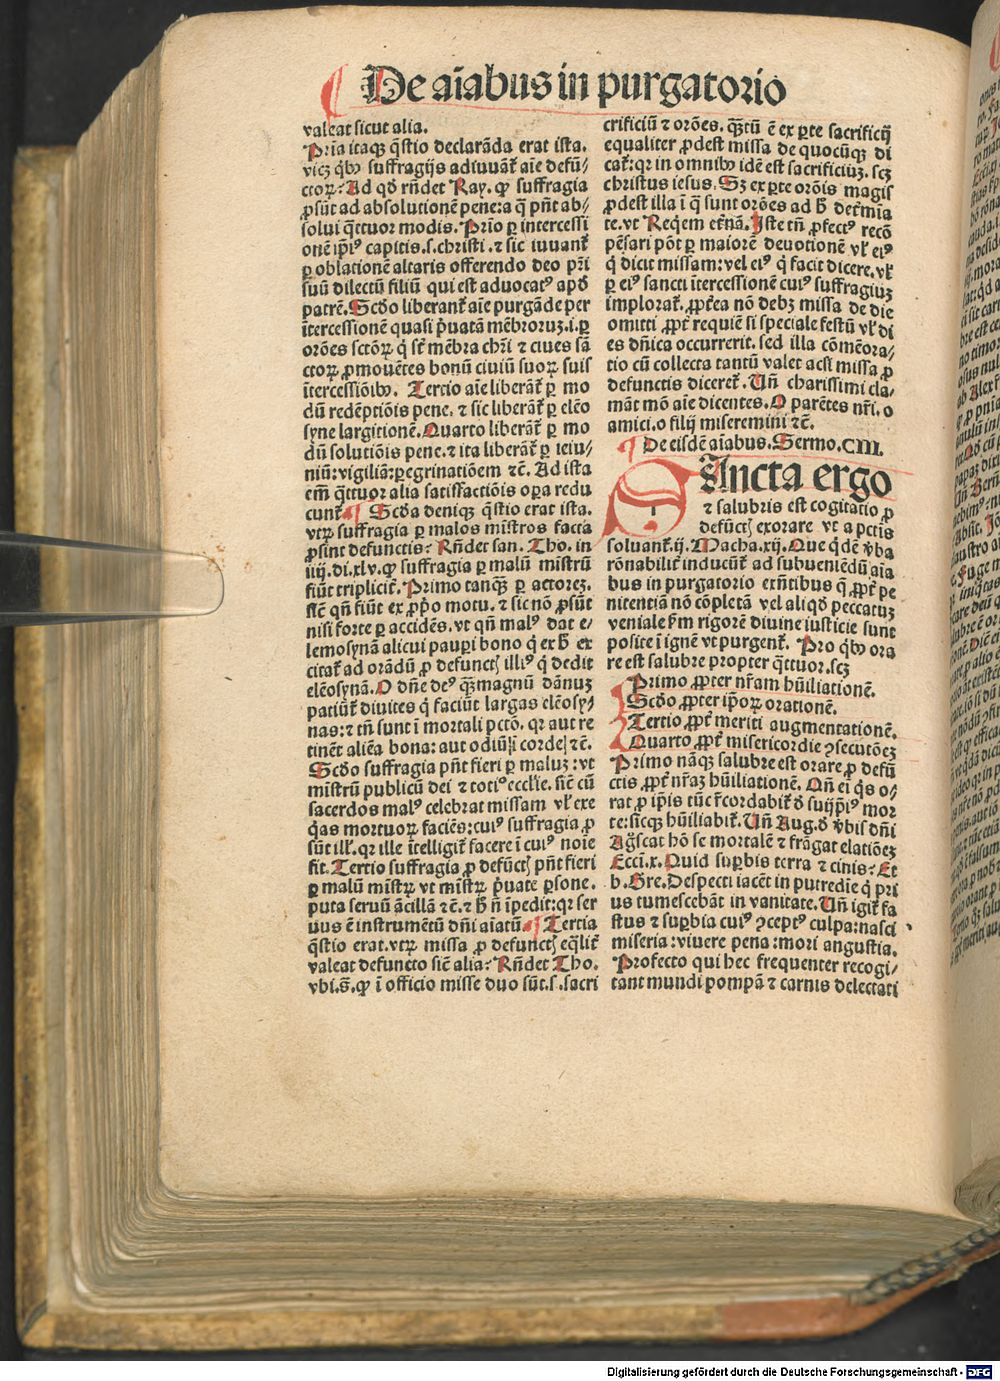 De aı̄abus in purgatorio
valeat sicut alia.
Pria itaqꝫ q̄stio declarāda erat ista.
vicꝫ q̄bꝰ suffragijs adiuuāt᷑ aı̄e defū-
ctoꝝ: Ad qd̄ rn̄det Ray. ꝙ suffragia
ꝓsūt ad absolutionē pene: a q̄ pn̄t ab-
solui q̄ttuor modis. Prı̄o ꝑ intercessi
onē ip̄iꝰ capitis .s. christi. ⁊ sic iuuant᷑
ꝑ oblationē altaris offerendo deo pr̄i
suū dilectū filiū qui est aduocatꝰ apđ
patrē. Scđo liberant᷑ aı̄e purgāde per
ı̄tercessionē quasi p̱uatā mēbroruꝫ .i. ꝑ
orōes sctōꝝ q̇ st̄ mēbra chr̄i ⁊ ciues sā
ctoꝝ ꝓmouētes bonū ciuiū suoꝝ suis
ı̄tercessiōibꝰ. Tertio aı̄e liberāt᷑ ꝑ mo
dū redēptiōis pene. ⁊ sic liberāt᷑ ꝑ elēo
syne largitionē. Quarto liberāt᷑ ꝑ mo
dū solutiōis pene. ⁊ ita liberāt᷑ ꝑ ieiu-
niū: vigiliā: ꝑegrinatiōem ⁊c̄. Ad ista
em̄ q̄ttuor alia satisfactiōis oꝑa redu
cunt᷑. ¶ Scđa deniqꝫ q̄stio erat ista.
vtꝝ suffragia ꝑ malos mı̄stros facta
ꝓsint defunctis: Rn̄det san. Tho. in
iiij. di. xlv. ꝙ suffragia ꝑ malū mistrū
fiūt tripliciť. Primo tanqꝫ̄ ꝑ actoreꝫ.
sic̄ qn̄ fiūt ex ꝓp̄o motu. ⁊ sic nō ꝓsūt
nisi forte ꝑ accidēs. vt qn̄ malꝰ dat e-
lemosynā alicui pauꝑi bono q̇ ex ħ ex
citat᷑ ad orādū ꝓ defunctꝭ illiꝰ q̇ dedit
elēosynā. O dn̄e deꝰ qꝫ̄ magnū dānuꝫ
patiūt᷑ diuites q̇ faciūt largas elēosy-
nas: ⁊ tn̄ sunt ı̄ mortali pctō. qr aut re
tinēt aliēa bona: aut odiūꝭ ı̄ corde ⁊c̄.
Scđo suffragia pn̄t fieri ꝑ maluꝫ: vt
mistrū publicū dei ⁊ totiꝰ ecclı̄e. sic̄ cū
sacerdos malꝰ celebrat missam vl̄ exe
q̇as mortuoꝝ faciēs: cuiꝰ suffragia ꝓ
sūt ill̄. qr ille ı̄telligit᷑ facere ı̄ cuiꝰ noı̄e
fit. Tertio suffragia ꝓ defunctꝭ pn̄t fieri
ꝑ malū mı̄strꝝ vt mı̄strꝝ p̱uate ꝑsone.
puta seruū ācillā ⁊c̄. ⁊ ħ n̄ ı̄pedit: qr ser
uus ē instrumētū dn̄i aı̄atū. ¶ Tertia
q̄stio erat. vtꝝ missa ꝓ defunctꝭ eq̄liť
valeat defuncto sic̄ alia: Rn̄det Tho.
vbi .s̄. ꝙ ı̄ officio misse duo sūt. s. sacri
crificiū ⁊ orōes. qꝫ̄tū ē ex ꝑte sacrificij
equaliter ꝓdest missa de quocūqꝫ di
cat᷑: qr in omnibꝰ idē est sacrificiuꝫ. scꝫ
christus iesus. Sꝫ ex ꝑte orōis magis
ꝓdest illa ı̄ q̄ sunt orōes ad ħ deťmı̄a
te. vt Req̇em eťnā. Iste tn̄ ꝓfectꝰ recō
pēsari pōt ꝑ maiorē deuotionē vl̄ eiꝰ
q̇ dicit missam: vel eiꝰ q̇ facit dicere. vl̄
ꝑ eiꝰ sancti ı̄tercessionē cuiꝰ suffragiuꝫ
implorat᷑. ꝓpťea nō debꝫ missa de die
omitti ꝓpť requiē si speciale festū vl̄ di
es dn̄ica occurrerit. sed illa cōmēora-
tio cū collecta tantū valet acsi missa ꝓ
defunctis diceret᷑. Vn̄ charissimi cla-
māt mō aı̄e dicentes. O parētes nr̄i. o
amici. o filij miseremini ⁊c̄.
¶ De eisdē aı̄abus. Sermo. CIII.
SAncta ergo
⁊ salubris est cogitatio ꝓ
defūctꝭ exorare vt a pctis
soluant᷑. ij. Macha. xij. Que q̇dē v̄ba
rōnabiliť inducūt᷑ ad subueniēdū aı̄a
bus in purgatorio exn̄tibus q̇ ꝓpť pe
nitentiā nō cōpletā vel aliqđ peccatuꝫ
veniale ẜm rigorē diuine iusticie sunt
posite ı̄ ignē vt purgent᷑. Pro q̇bꝰ ora
re est salubre propter q̄ttuor. scꝫ
Primo ꝓpter nr̄am hūiliationē.
Scđo ꝓpter ip̄oꝝ orationē.
Tertio ꝓpť meriti augmentationē.
Quarto ꝓpť misericordie ꝯsecutōeꝫ
Primo nāqꝫ salubre est orare ꝓ defū
ctis ꝓpť nr̄aꝫ hūiliationē. Qn̄ eı̄ q̇s o-
rat ꝓ ip̄is tūc r̄cordabit᷑ đ suijp̄iꝰ mor
te: sicqꝫ hūiliabit᷑. Vn̄ Aug. đ v̄bis dn̄i
Agͦscat hō se mortalē ⁊ frāgat elatiōeꝫ
Ecci. x. Quid suꝑbis terra ⁊ cinis: Et
b. Gre. Despecti iacēt in putredı̄e q̇ pri
us tumescebāt in vanitate. Vn̄ igit᷑ fa
stus ⁊ suꝑbia cuiꝰ ꝯceptꝰ culpa: nasci
miseria: viuere pena: mori angustia.
Profecto qui hec frequenter recogi-
tant mundi pompā ⁊ carnis delectati
Digitalisierung gefördert durch die Deutsche Forschungsgemeinschaft - DFG